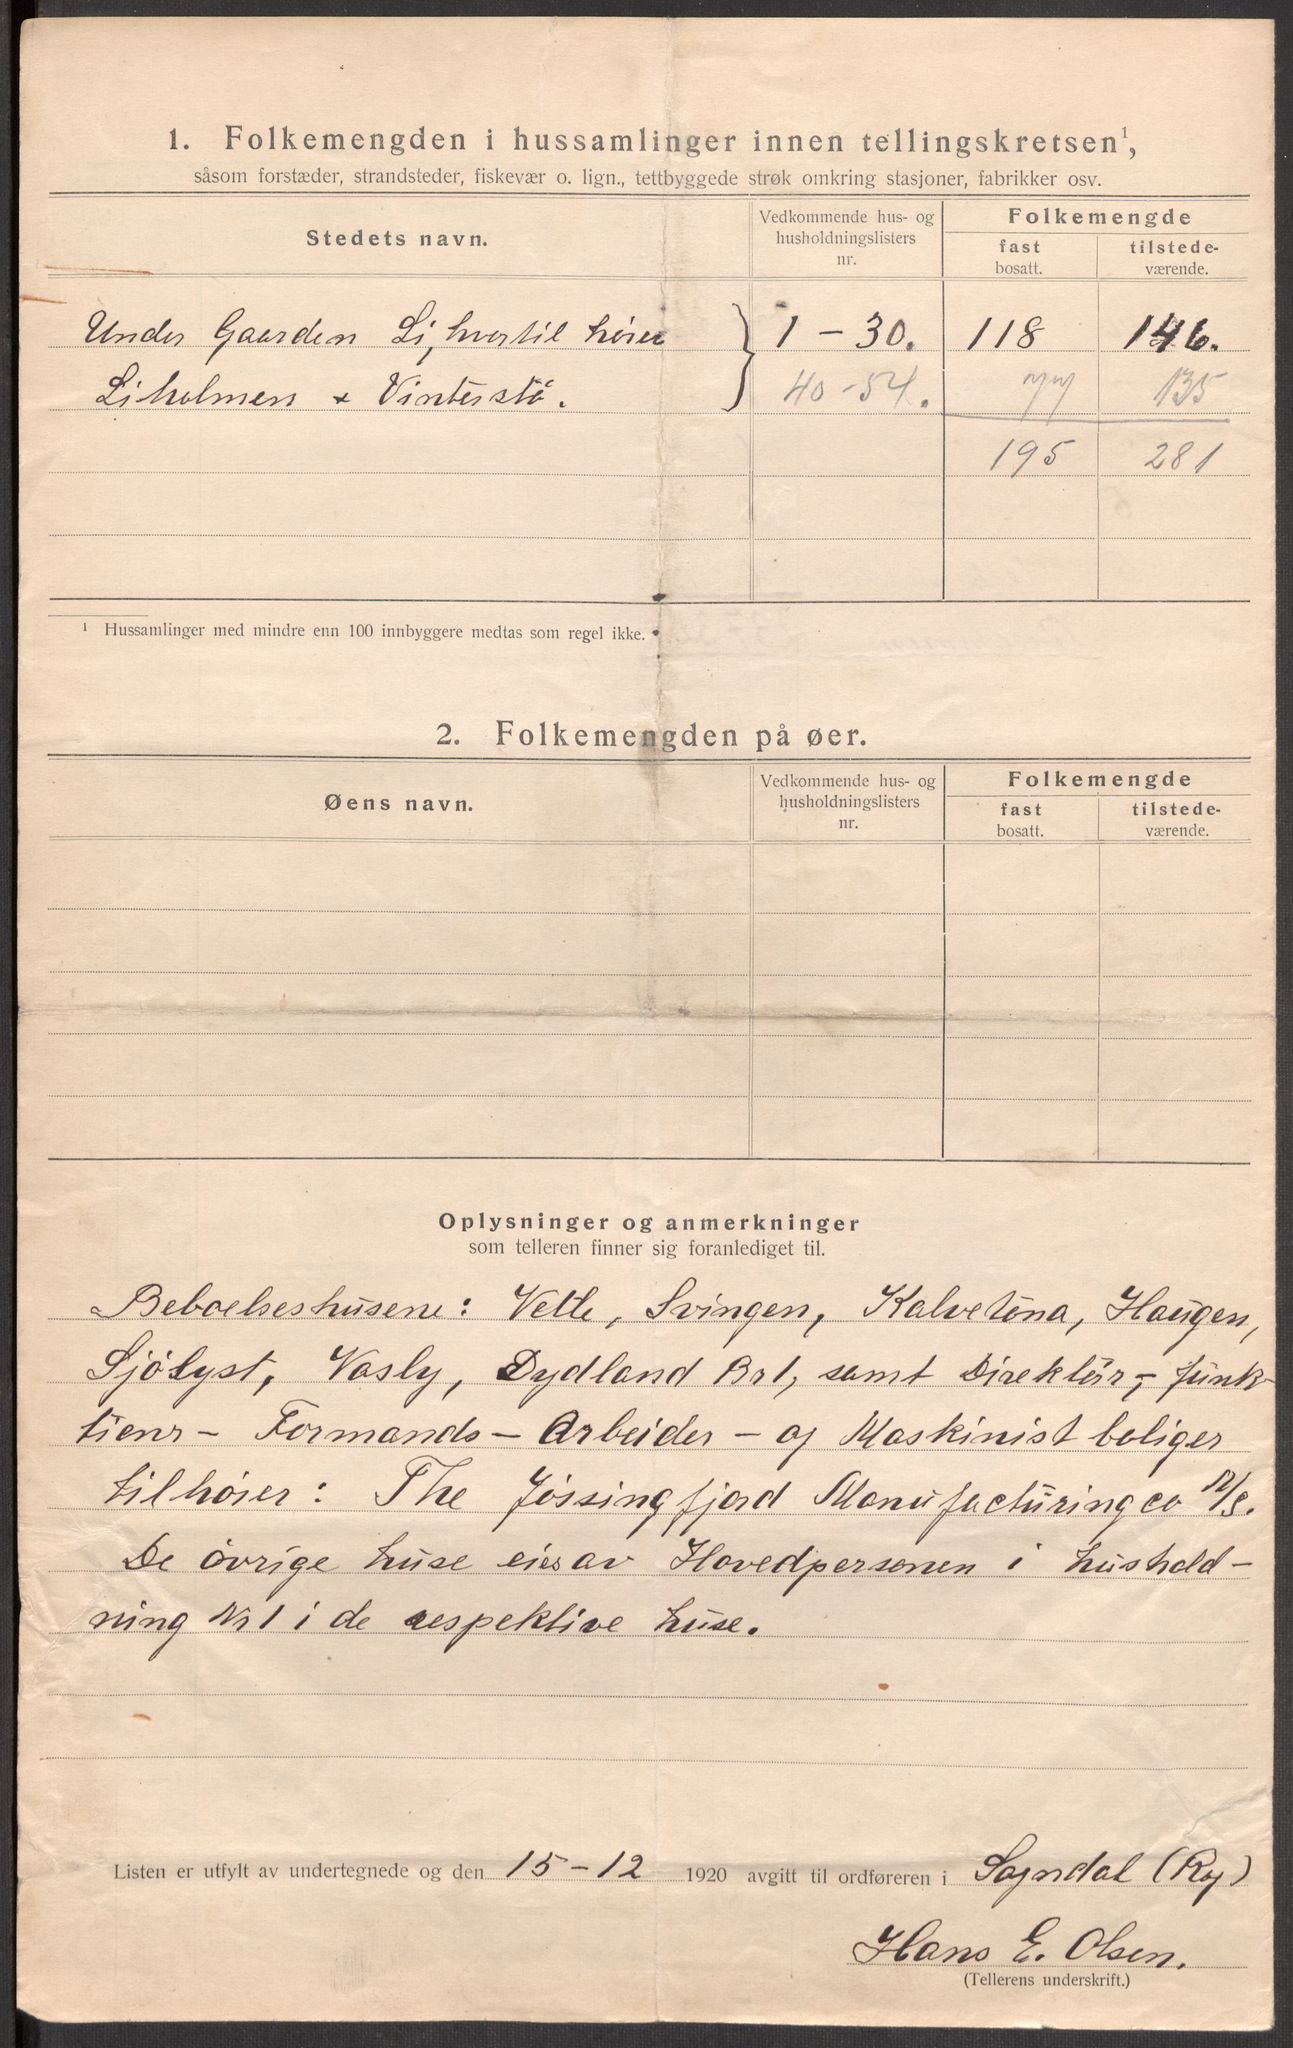 1. Folkemengden i hussamlinger innen tellingskretsen¹,
såsom forstæder, strandsteder, fiskevær o. lign., tettbyggede strøk omkring stasjoner, fabrikker osv.
Stedets navn.
Vedkommende hus- og
husholdningslisters
nr.
Folkemengde
fast
bosatt.
tilstede-
værende.
Under Gaarden Li, hvortil hører 1 - 30. 118 146.
Liholmen + Vinterstö. 40 - 54. 77 135
195 281
¹ Hussamlinger med mindre enn 100 innbyggere medtas som regel ikke.
2. Folkemengden på øer.
Øens navn.
Vedkommende hus- og
husholdningslisters
nr.
Folkemengde
fast
bosatt.
tilstede-
værende.
Oplysninger og anmerkninger
som telleren finner sig foranlediget til.
Beboelseshusene: Vetle, Svingen, Kalvetuna, Haugen,
Sjölyst, Vasly, Dydland Br 1, samt Direktör-, funk-
tienr - Formands - Arbeider - og Maskinist boliger
tilhöier: The Jössingfjord Manufacturing co A/S.
De övrige huse eies av Hovedpersonen i hushold-
ning Nr 1 i de respektive huse.
Listen er utfylt av undertegnede og den 15-12 1920 avgitt til ordføreren i Sogndal (Rog)
Hans E. Olsen.
(Tellerens underskrift.)